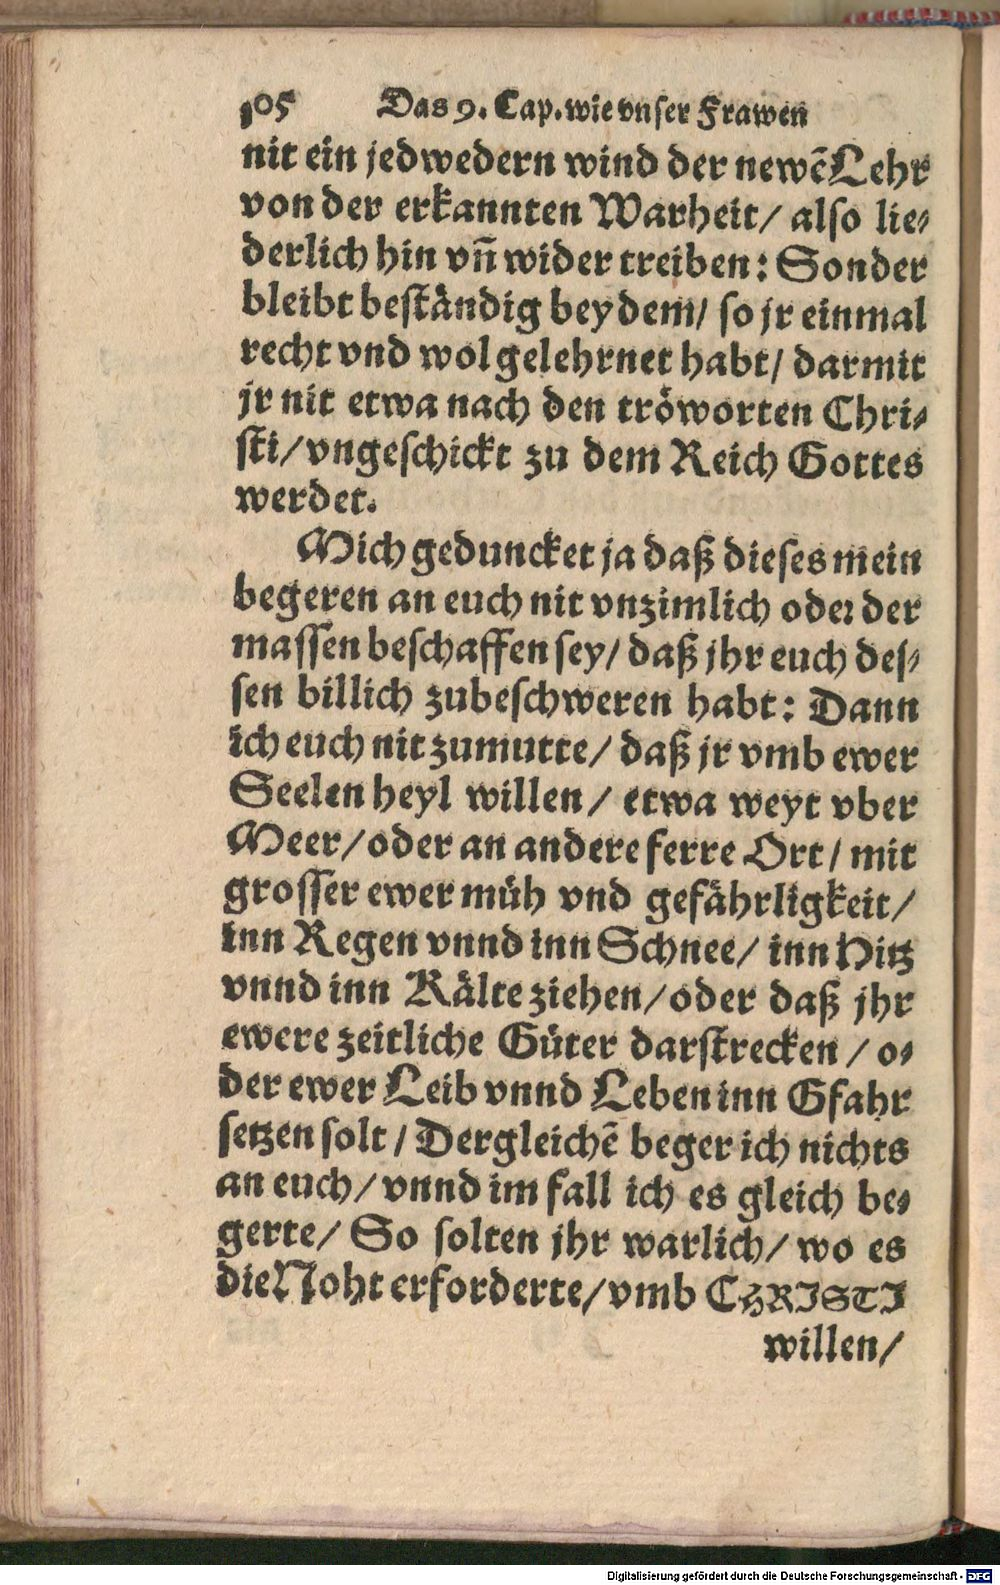 105 Das 9. Cap. wie vnser Frawen
nit ein jedwedern wind der newē Lehr
von der erkannten Warheit/ also lie⸗
derlich hin vñ wider treiben: Sonder
bleibt beständig bey dem/ so jr einmal
recht vnd wol gelehrnet habt/ darmit
jr nit etwa nach den tröworten Chri⸗
sti/ vngeschickt zu dem Reich Gottes
werdet.
Mich geduncket ja daß dieses mein
begeren an euch nit vnzimlich oder der
massen beschaffen sey/ daß jhr euch des⸗
sen billich zubeschweren habt: Dann
ich euch nit zumutte/ daß jr vmb ewer
Seelen heyl willen/ etwa weyt vber
Meer/ oder an andere ferre Ort/ mit
grosser ewer müh vnd gefährligkeit/
inn Regen vnnd inn Schnee/ inn Hitz
vnnd inn Kälte ziehen/ oder daß jhr
ewere zeitliche Güter darstrecken/ o⸗
der ewer Leib vnnd Leben inn Gfahr
setzen solt/ Dergleichē beger ich nichts
an euch/ vnnd im fall ich es gleich be⸗
gerte/ So solten jhr warlich/ wo es
die Noht erforderte/ vmb CHRISTI
willen/
Digitalisierung gefördert durch die Deutsche Forschungsgemeinschaft - DFG